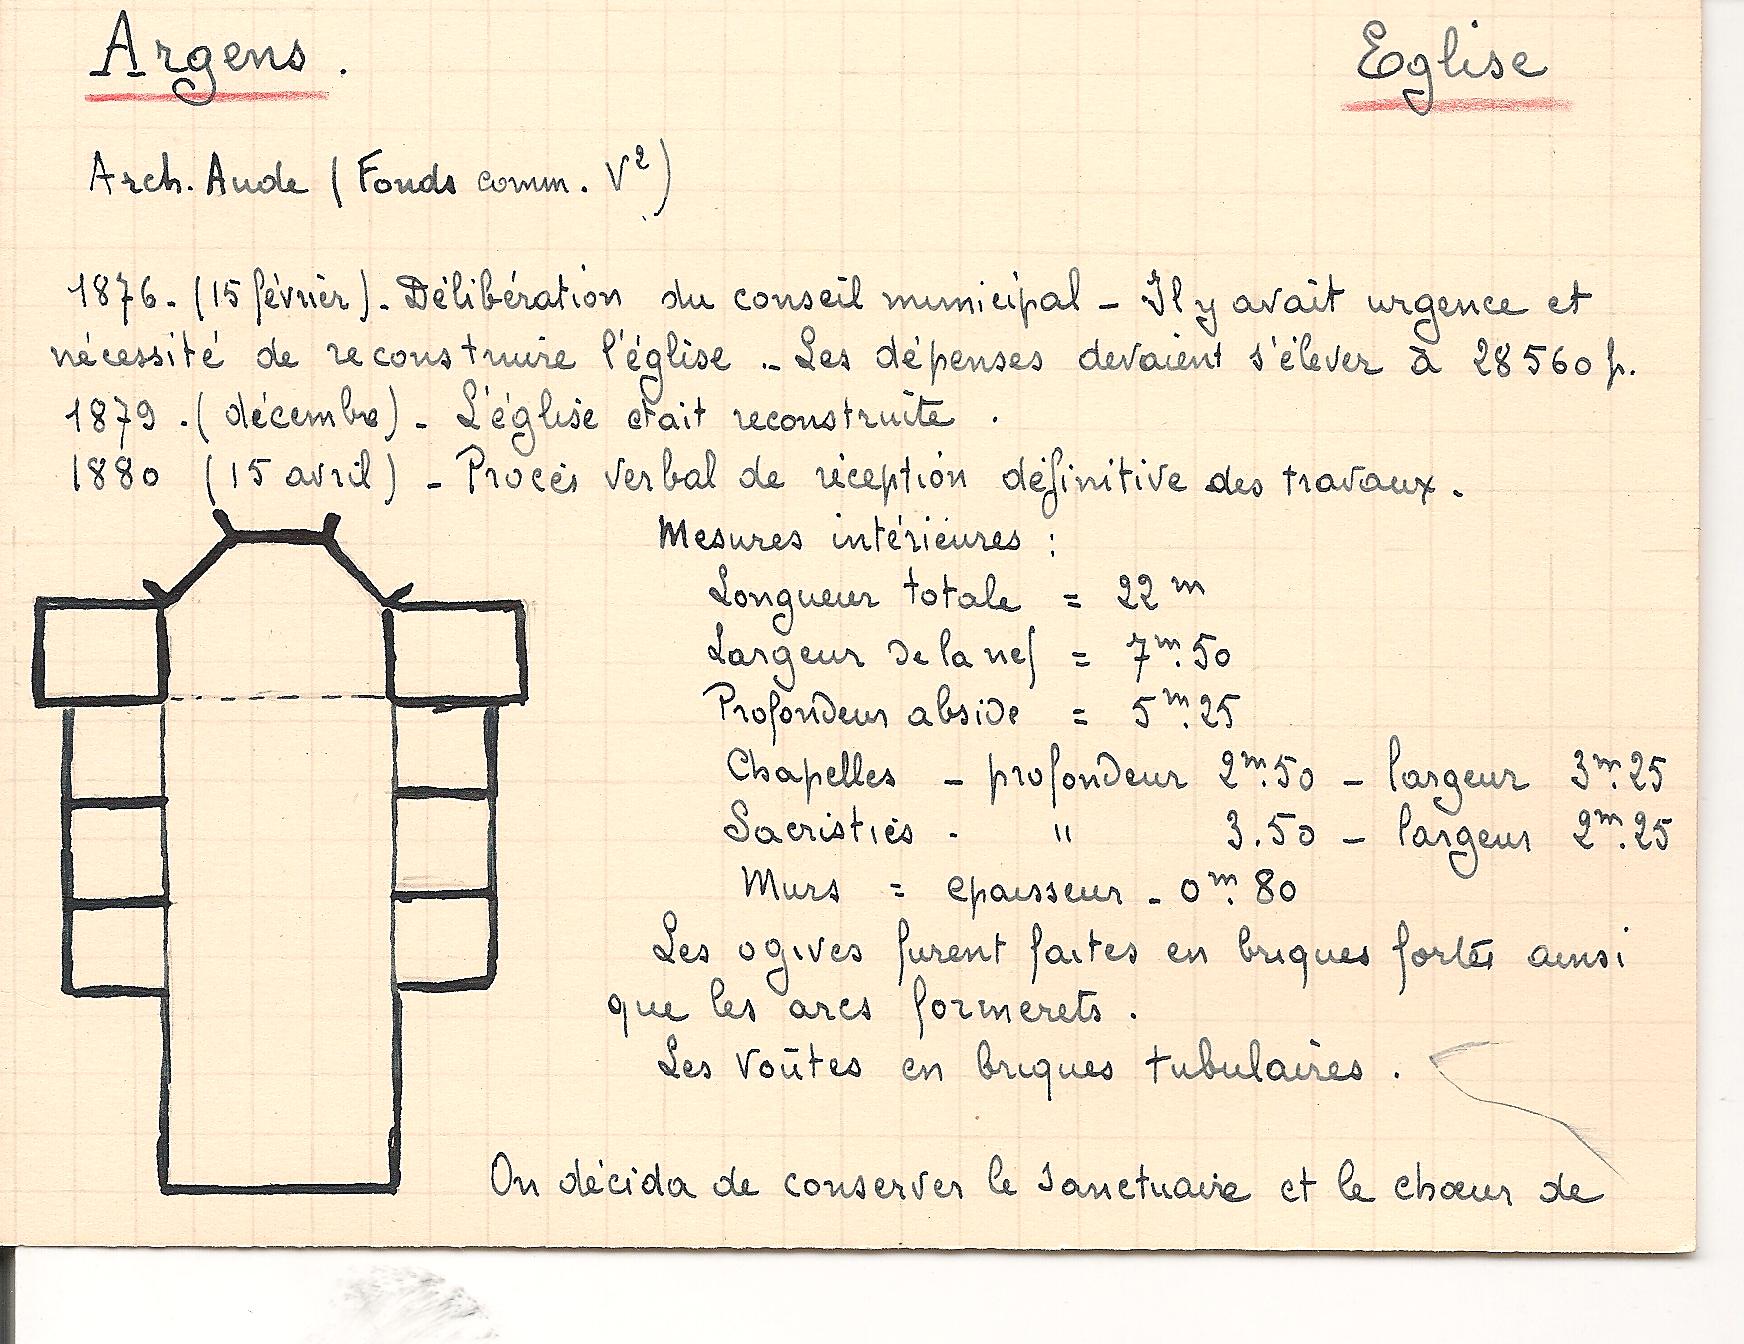 Argens. Eglise
Arch. Aude (Fonds comm. V²)
1876. (15 février). Délibération du conseil municipal – Il y avait urgence et
nécessité de reconstruire l'église .. Les dépenses devaient s'élever à 28560 f.
1879 . (décembre) - L'église était reconstruite .
1880 (15 avril) - Procès verbal de réception définitive des travaux.
Mesures intérieures :
Longueur totale = 22 m
Largeur de la nef = 7m.50
Profondeur abside = 5m.25
Chapelles - profondeur 2m.50 - largeur 3m.25
Sacristies . " 3.50 - largeur 2m.25
Murs = épaisseur - 0m.80
Les ogives furent faites en briques fortes ainsi
que les arcs formerets .
Les voûtes en briques tubulaires .
On décida de conserver le sanctuaire et le chœur de